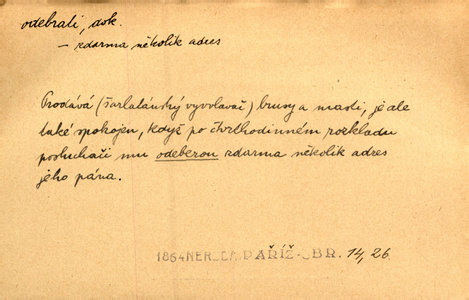 odebrati, dok.
– zdarma několik adres
Prodává (šarlatánský vyvolavač) brusy a masti, je ale
také spokojen, když po čtvrthodinném rozkladu
posluchači mu odeberou zdarma několik adres
jeho pána.
1864 NER. PAŘÍŽ-OBR. 14, 26